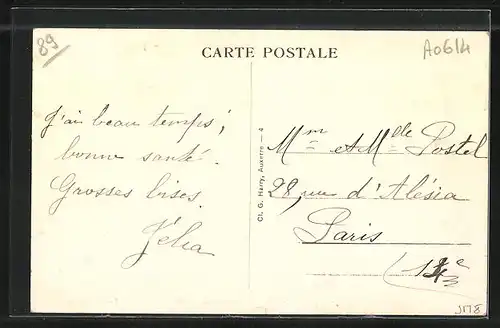 89
A0614
CARTE POSTALE
J'ai beau temps;
bonne santé.
Grosses bises.
Mme et Mlle Postel
28, rue d'Alésia
Paris
(14e)
Cl. G. Harry, Auxerre — 4